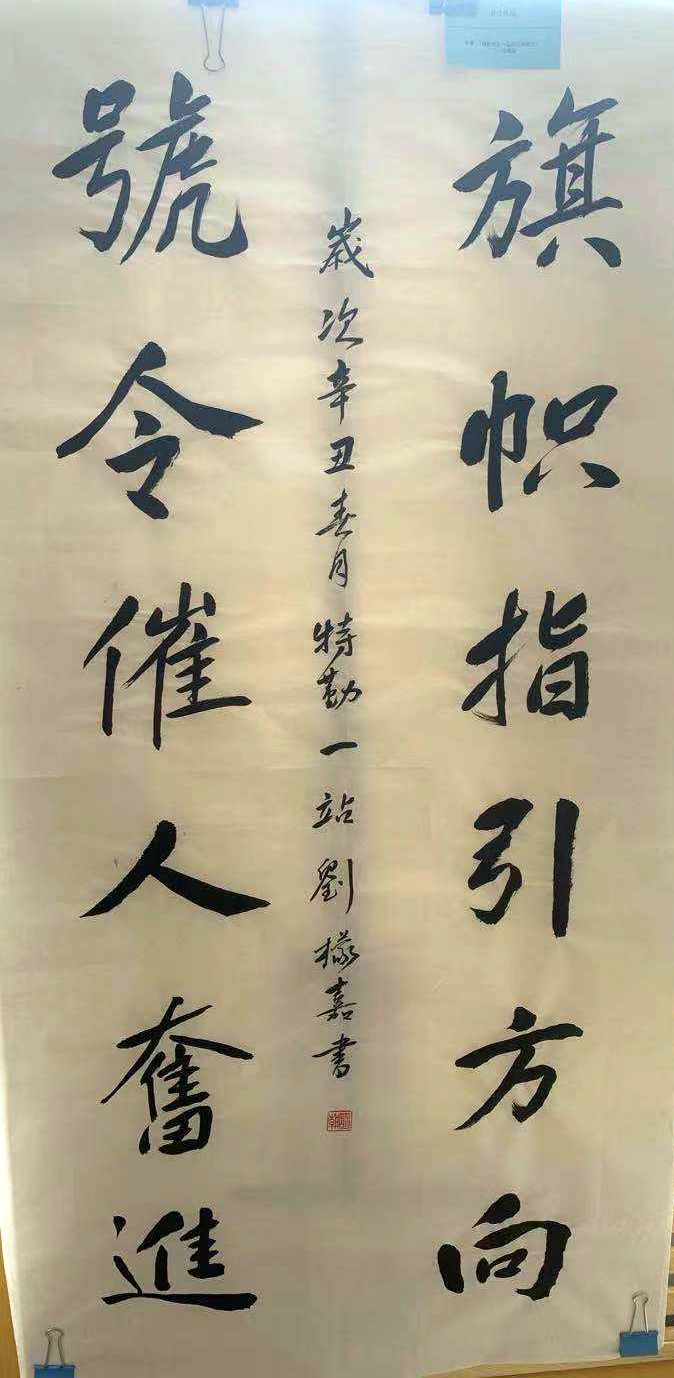 旗帜指引方向
號令催人奮進
歲次辛丑春月特勤一站劉檬嘉書